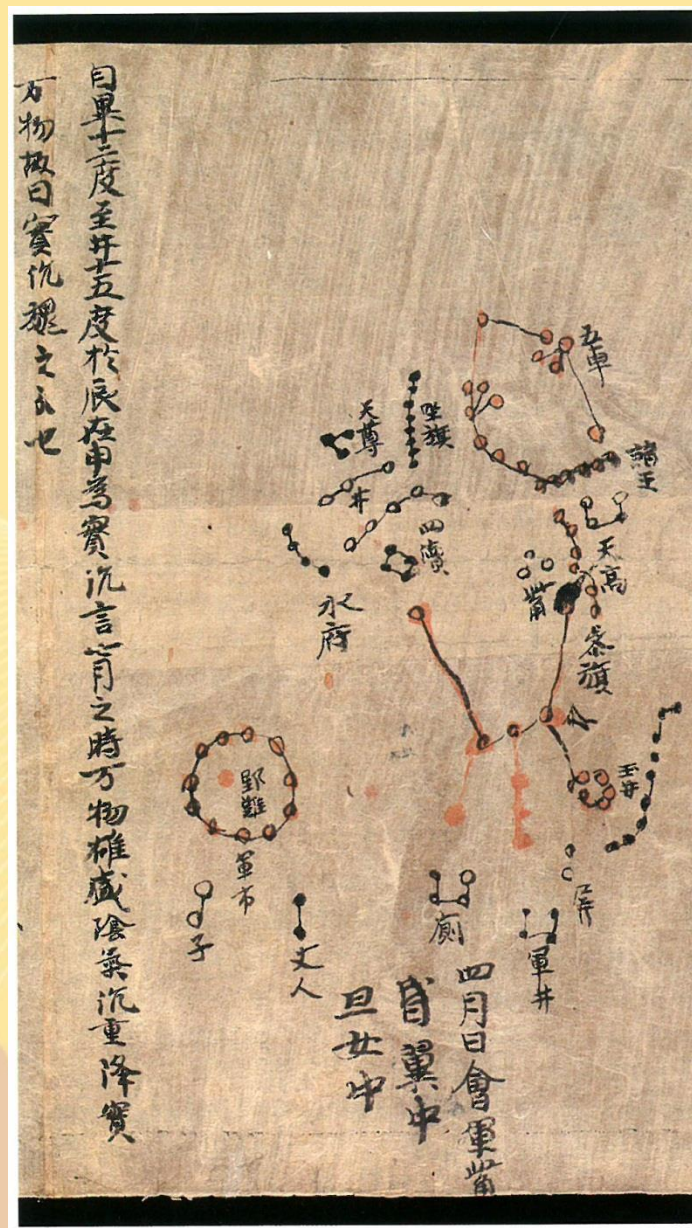 五車
諸王
天高
叅旗
觜
玉井
屏
軍井
廁
坐旗
天尊
井
四瀆
水府
野雞
軍市
丈人
子
四月日會畢觜
昏翼中
旦女中
自畢十二度至井十五度於辰在申為實沉言七月之時万物雄盛陰氣沉重降實
万物故曰實沉魏之分也